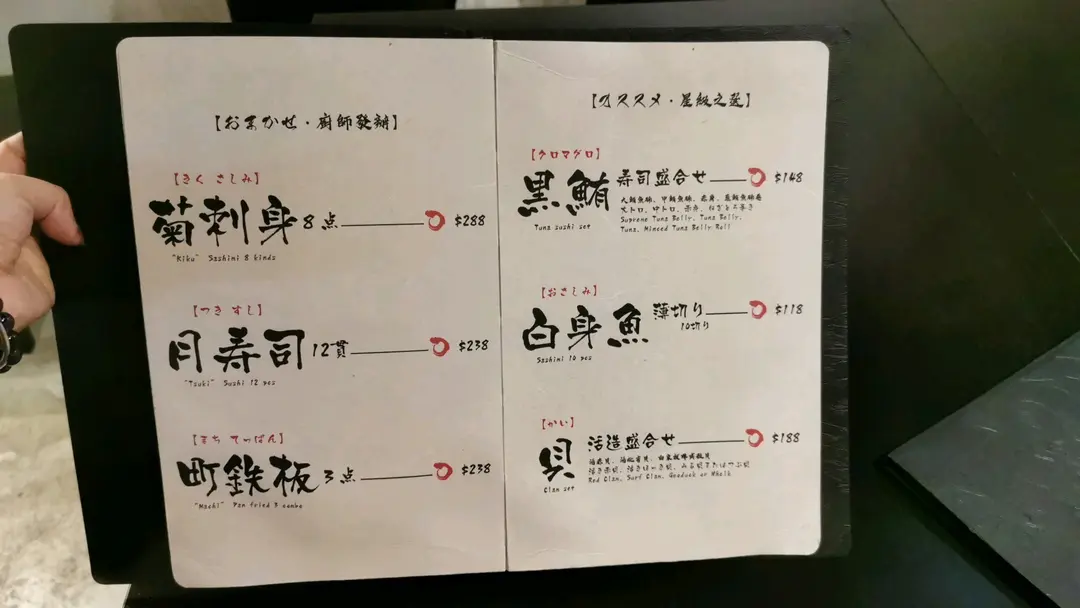 【おまかせ・廚師發辦】
【きく さしみ】
菊刺身 8点 $288
"Kiku" Sashimi 8 kinds
【つき すし】
月寿司 12貫 $238
"Tsuki" Sushi 12 pcs
【まち てっぱん】
町鉄板 3点 $238
"Machi" Pan fried 3 combo
【オススメ・星級之選】
【クロマグロ】
黒鮪 寿司盛合せ $148
大トロ、中トロ、赤身、ねぎとろ巻き
Supreme Tuna Belly, Tuna Belly,
Tuna, Minced Tuna Belly Roll
Tuna sushi set
【おさしみ】
白身魚 薄切り $118
10切り
Sashimi 10 pcs
【かい】
貝 活造盛合せ $188
Red Clam, Surf Clam, Geoduck or Whelk
Clam set